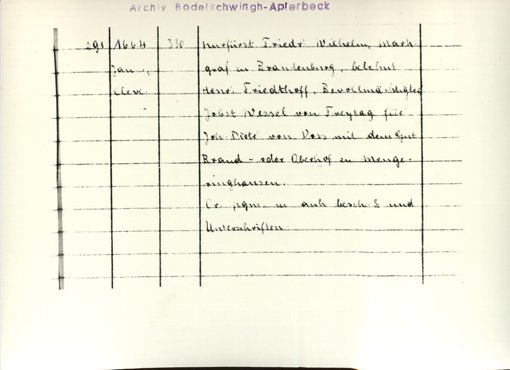 Archiv Bodelschwingh-Aplerbeck
291 1664 330 Kurfürst Friedr Wilhelm, Mark
Jan., graf zu Brandenburg, belehnt
Cleve Henr. Friedthoff, Bevollmächtigter
Jobst Wessel von Freytag für
Joh. Dietr von Voss mit dem Gut
Brand- oder Oberhof zu Menge-
ringhausen.
Or. m anh besch S und
Unterschriften